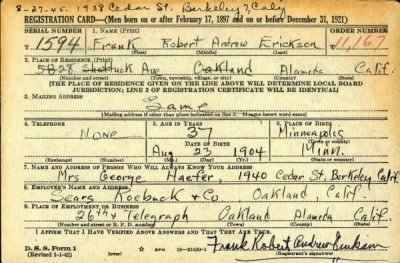 8-27-45. 1938 Cedar St. Berkeley 7, Caly
REGISTRATION CARD—(Men born on or after February 17, 1897 and on or before December 31, 1921)
SERIAL NUMBER 1. NAME (Print) ORDER NUMBER
T 1594 Frank Robert Andrew Erickson 11,167
2. PLACE OF RESIDENCE (Print)
5828 Shattuck Av Oakland Alameda Calif.
(Number and street) (Town, township, village, or city) (County) (State)
[THE PLACE OF RESIDENCE GIVEN ON THE LINE ABOVE WILL DETERMINE LOCAL BOARD
JURISDICTION; LINE 2 OF REGISTRATION CERTIFICATE WILL BE IDENTICAL]
3. MAILING ADDRESS
Same
(Mailing address if other than place indicated on line 2. If same insert word same)
4. TELEPHONE 5. AGE IN YEARS 6. PLACE OF BIRTH
None 37 Minneapolis
DATE OF BIRTH (Town or county)
Aug 23 1904 Minn.
(Exchange) (Number) (Mo.) (Day) (Yr.) (State or country)
7. NAME AND ADDRESS OF PERSON WHO WILL ALWAYS KNOW YOUR ADDRESS
Mrs George Haefer 1940 Cedar St, Berkeley, Calif
8. EMPLOYER'S NAME AND ADDRESS
Sears Roebuck & Co. Oakland, Calif.
9. PLACE OF EMPLOYMENT OR BUSINESS
26th & Telegraph Oakland Alameda Calif.
(Number and street or R. F. D. number) (Town) (County) (State)
I AFFIRM THAT I HAVE VERIFIED ABOVE ANSWERS AND THAT THEY ARE TRUE.
D. S. S. Form 1 Frank Robert Andrew Erickson
(Revised 1-1-42) (over) (Registrant's signature)